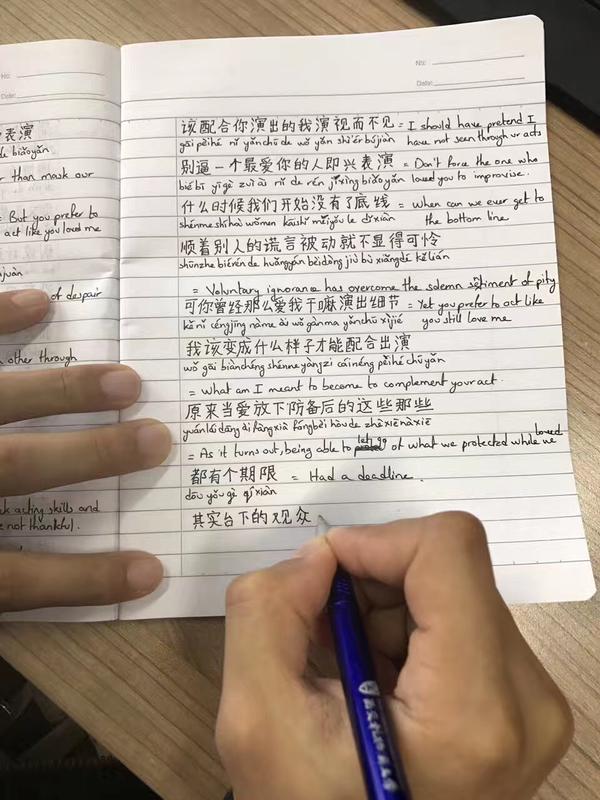 表演
de biǎoyǎn
r than mask our
= But you prefer to
act like you loved me
ǎnjuàn
of despair
other through
acting skills and
e not thankful.
No:
Date:
No:
Date:
该配合你演出的我演视而不见 = I should have pretend I
gāi pèihé nǐ yǎnchū de wǒ yǎn shì'ér bùjiàn have not seen through ur acts
别逼一个最爱你的人即兴表演 = Don't force the one who
bié bī yīgè zuì ài nǐ de rén jíxìng biǎoyǎn loved you to improvise.
什么时候我们开始没有了底线 = when can we ever get to
shénme shíhòu wǒmen kāishǐ méiyǒu le dǐxiàn the bottom line
顺着别人的谎言被动就不显得可怜
shùnzhe biérén de huǎngyán bèidòng jiù bù xiǎngdé kělián
= Voluntary ignorance has overcome the solemn sentiment of pity
可你曾经那么爱我干嘛演出细节 = Yet you prefer to act like
kě nǐ céngjīng nàme ài wǒ gànma yǎnchū xìjié you still love me
我该变成什么样子才能配合出演
wǒ gāi biànchéng shénme yàngzi cáinéng pèihé chūyǎn
= what am I meant to become to complement your act.
原来当爱放下防备后的这些那些
yuánlái dāng ài fàngxià fángbèi hòu de zhèxiē nàxiē
= As it turns out, being able to let go of what we protected while we loved
都有个期限 = Had a deadline.
dōu yǒu gè qíxiàn
其实台下的观众